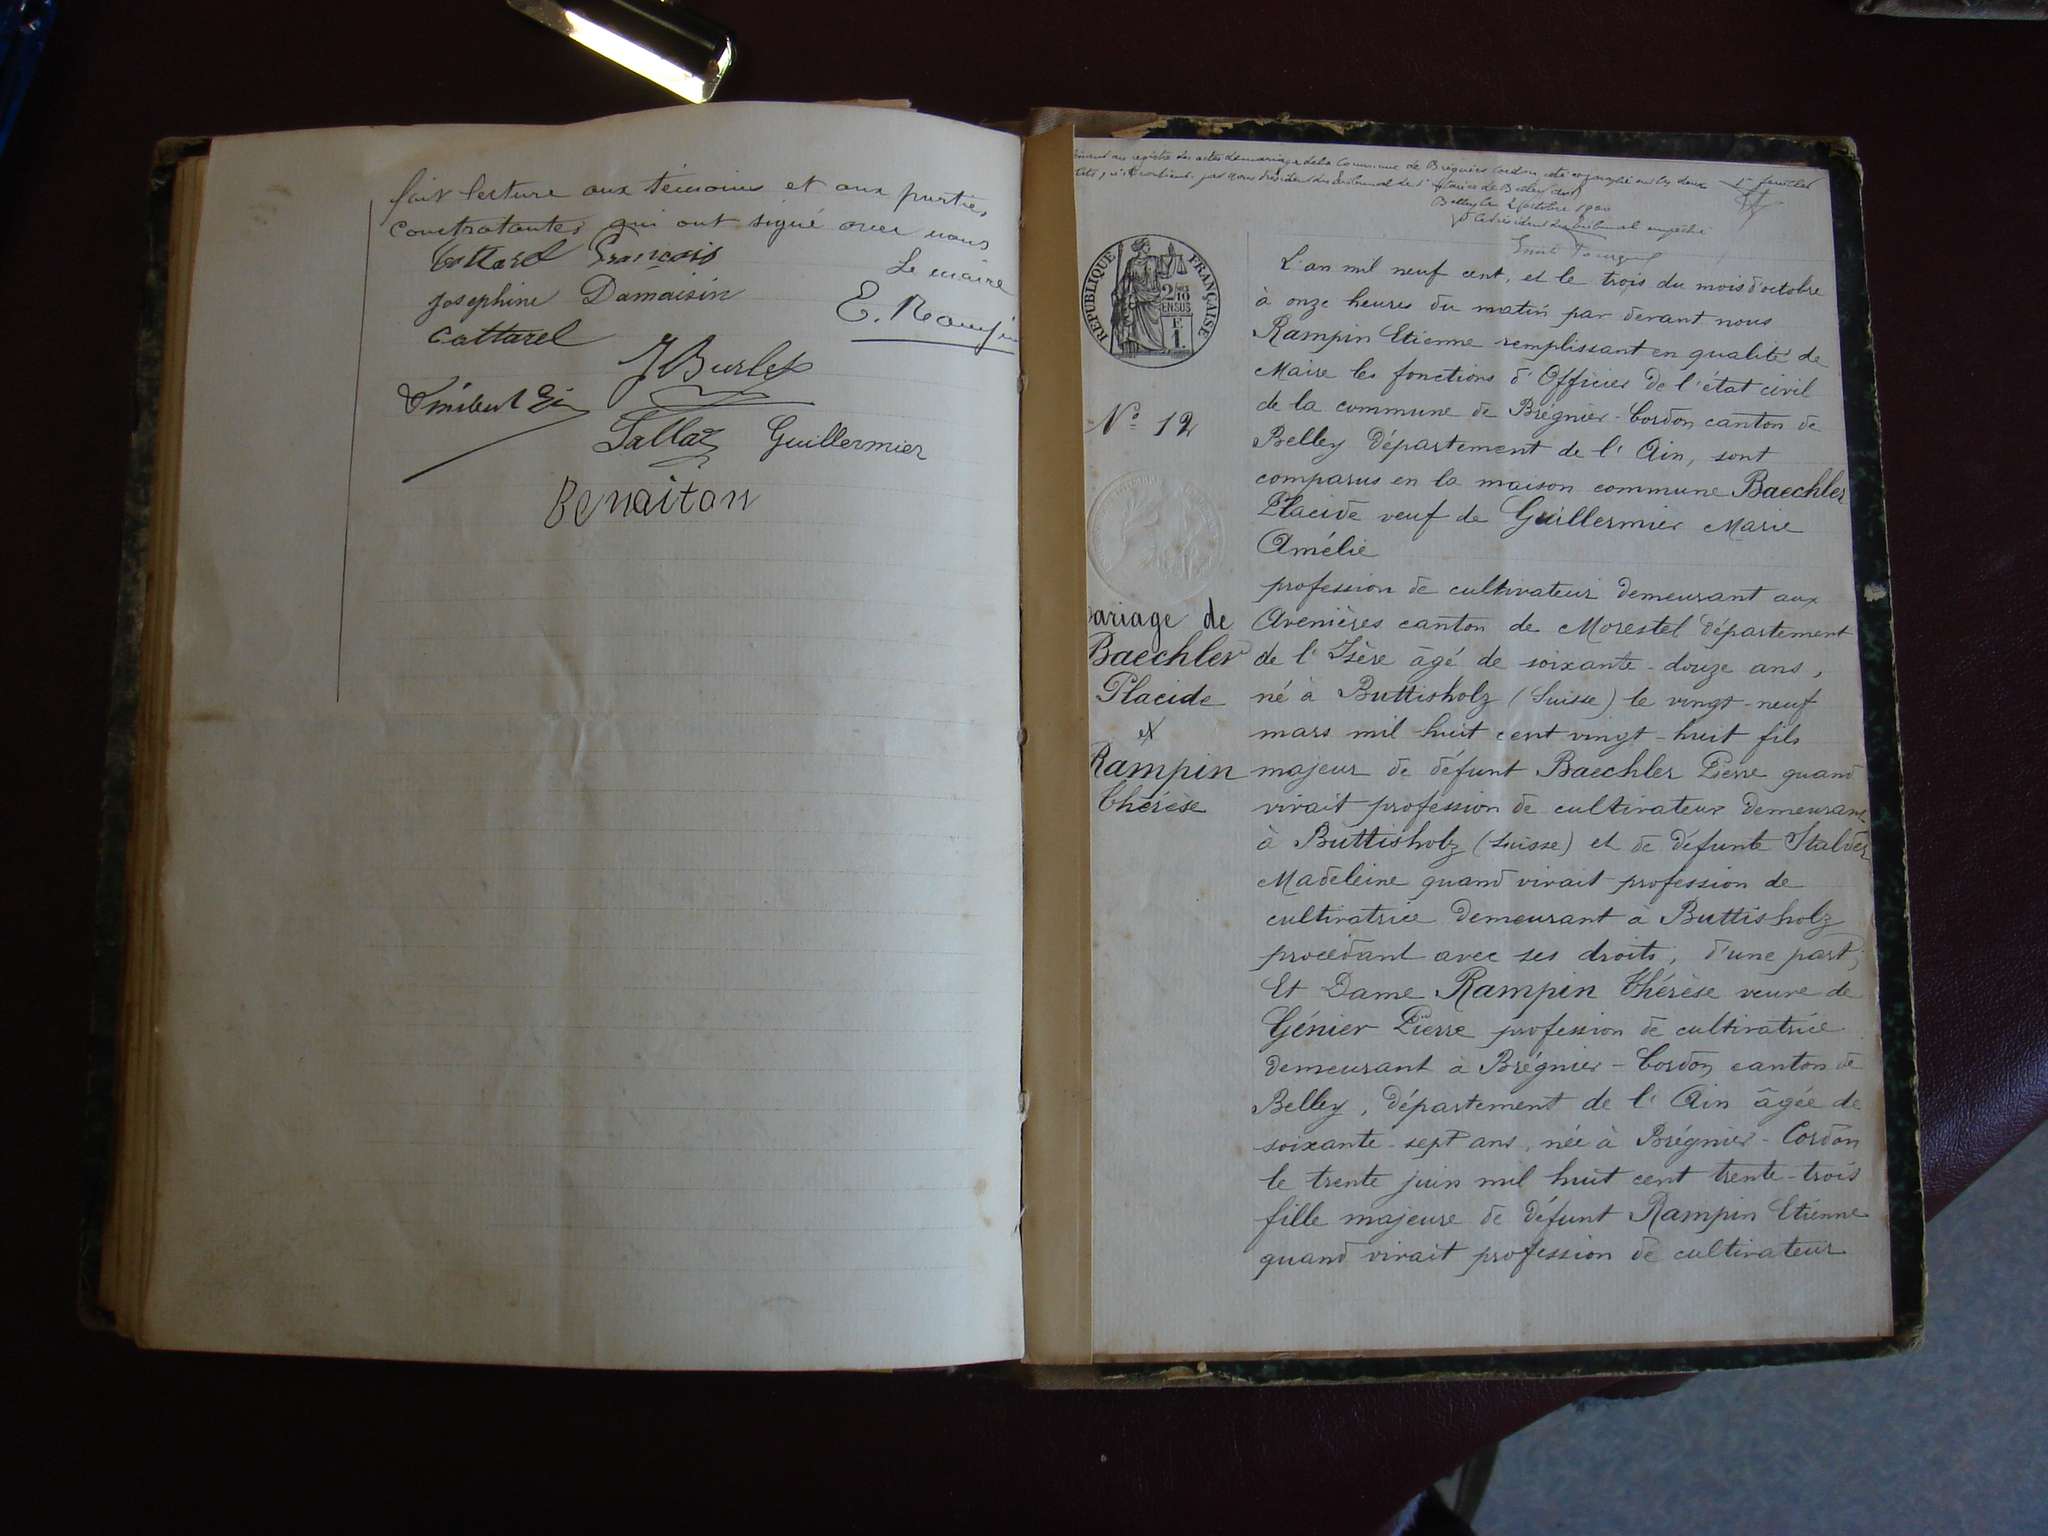 fait lecture aux témoins et aux parties
contratantes qui ont signé avec nous
Cottarel François
Le maire
Josephine Damaisin
E. Rampin
Cottarel
J Burlet
Guillermier
Benaiton
registre des actes de mariage de la Commune de Brégnier Cordon
1er feuillet
Belley le 2 octobre 1900
L'an mil neuf cent, et le trois du mois d'octobre
à onze heures du matin par devant nous
Rampin Etienne remplissant en qualité de
Maire les fonctions d'Officier de l'état civil
de la commune de Brégnier-Cordon canton de
Belley Département de l'Ain, sont
comparus en la maison commune Baechler
Placide veuf de Guillermier Marie
Amélie
profession de cultivateur demeurant aux
Avenières canton de Morestel Département
de l'Isère âgé de soixante-douze ans,
né à Buttisholz (Suisse) le vingt-neuf
mars mil huit cent vingt-huit fils
majeur de défunt Baechler Pierre quand
vivait profession de cultivateur demeurant
à Buttisholz (Suisse) et de défunte Stalder
Madeleine quand vivait profession de
cultivatrice demeurant à Buttisholz
procédant avec ses droits, d'une part,
Et Dame Rampin Thérèse veuve de
Génier Pierre profession de cultivatrice
demeurant à Brégnier-Cordon canton de
Belley, département de l'Ain âgée de
soixante-sept ans, née à Brégnier-Cordon
le trente juin mil huit cent trente-trois
fille majeure de défunt Rampin Etienne
quand vivait profession de cultivateur
RÉPUBLIQUE FRANÇAISE
2/10
EN SUS
F
1.
N° 12
ariage de
Baechler
Placide
et
Rampin
Thérèse